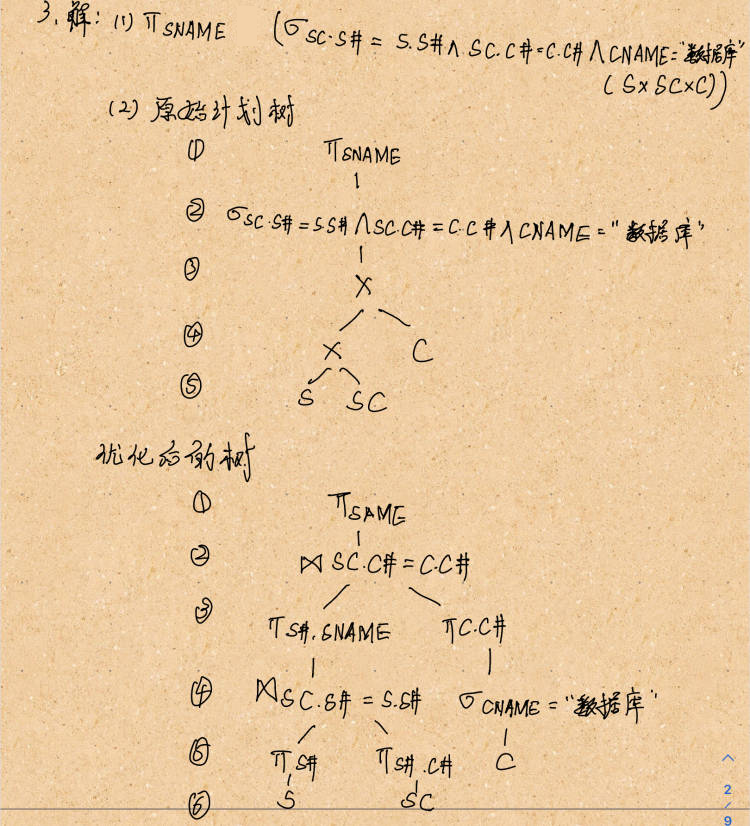 3. 解: (1) π SNAME (σ SC.S# = S.S# ∧ SC.C# = C.C# ∧ CNAME = "数据库"
(S×SC×C))
(2) 原始计划树
① π SNAME
② σ SC.S# = S.S# ∧ SC.C# = C.C# ∧ CNAME = "数据库"
③ ×
④ × C
⑤ S SC
优化后的树
① π SAME
② ⋈ SC.C# = C.C#
③ π S#.SNAME π C.C#
④ ⋈ SC.S# = S.S# σ CNAME = "数据库"
⑤ π S# π S#.C# C
⑥ S SC
2
/
9